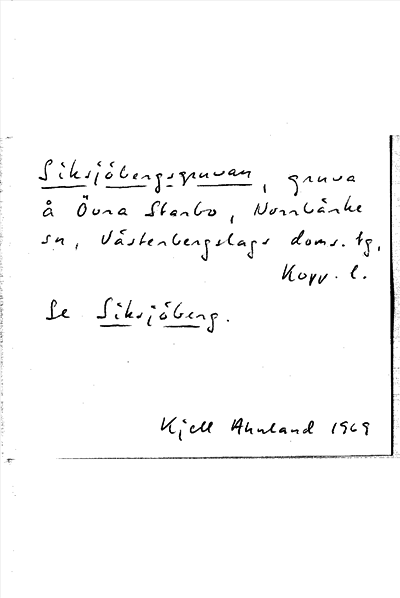 Siksjöbergsgruvan, gruva
å Övra Starbo, Norrbärke
sn, Västerbergslags doms. tg,
Kopp. l.
Se Siksjöberg.
Kjell Ahnland 1969